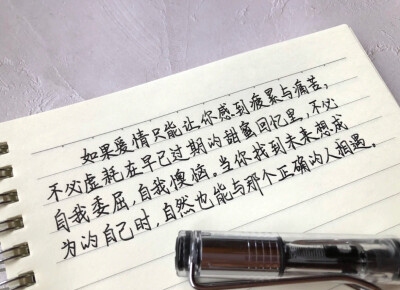 如果爱情只能让你感到疲累与痛苦，
不必虚耗在早已过期的甜蜜回忆里，不必
自我委屈，自我懊恼。当你找到未来想成
为的自己时，自然也能与那个正确的人相遇。